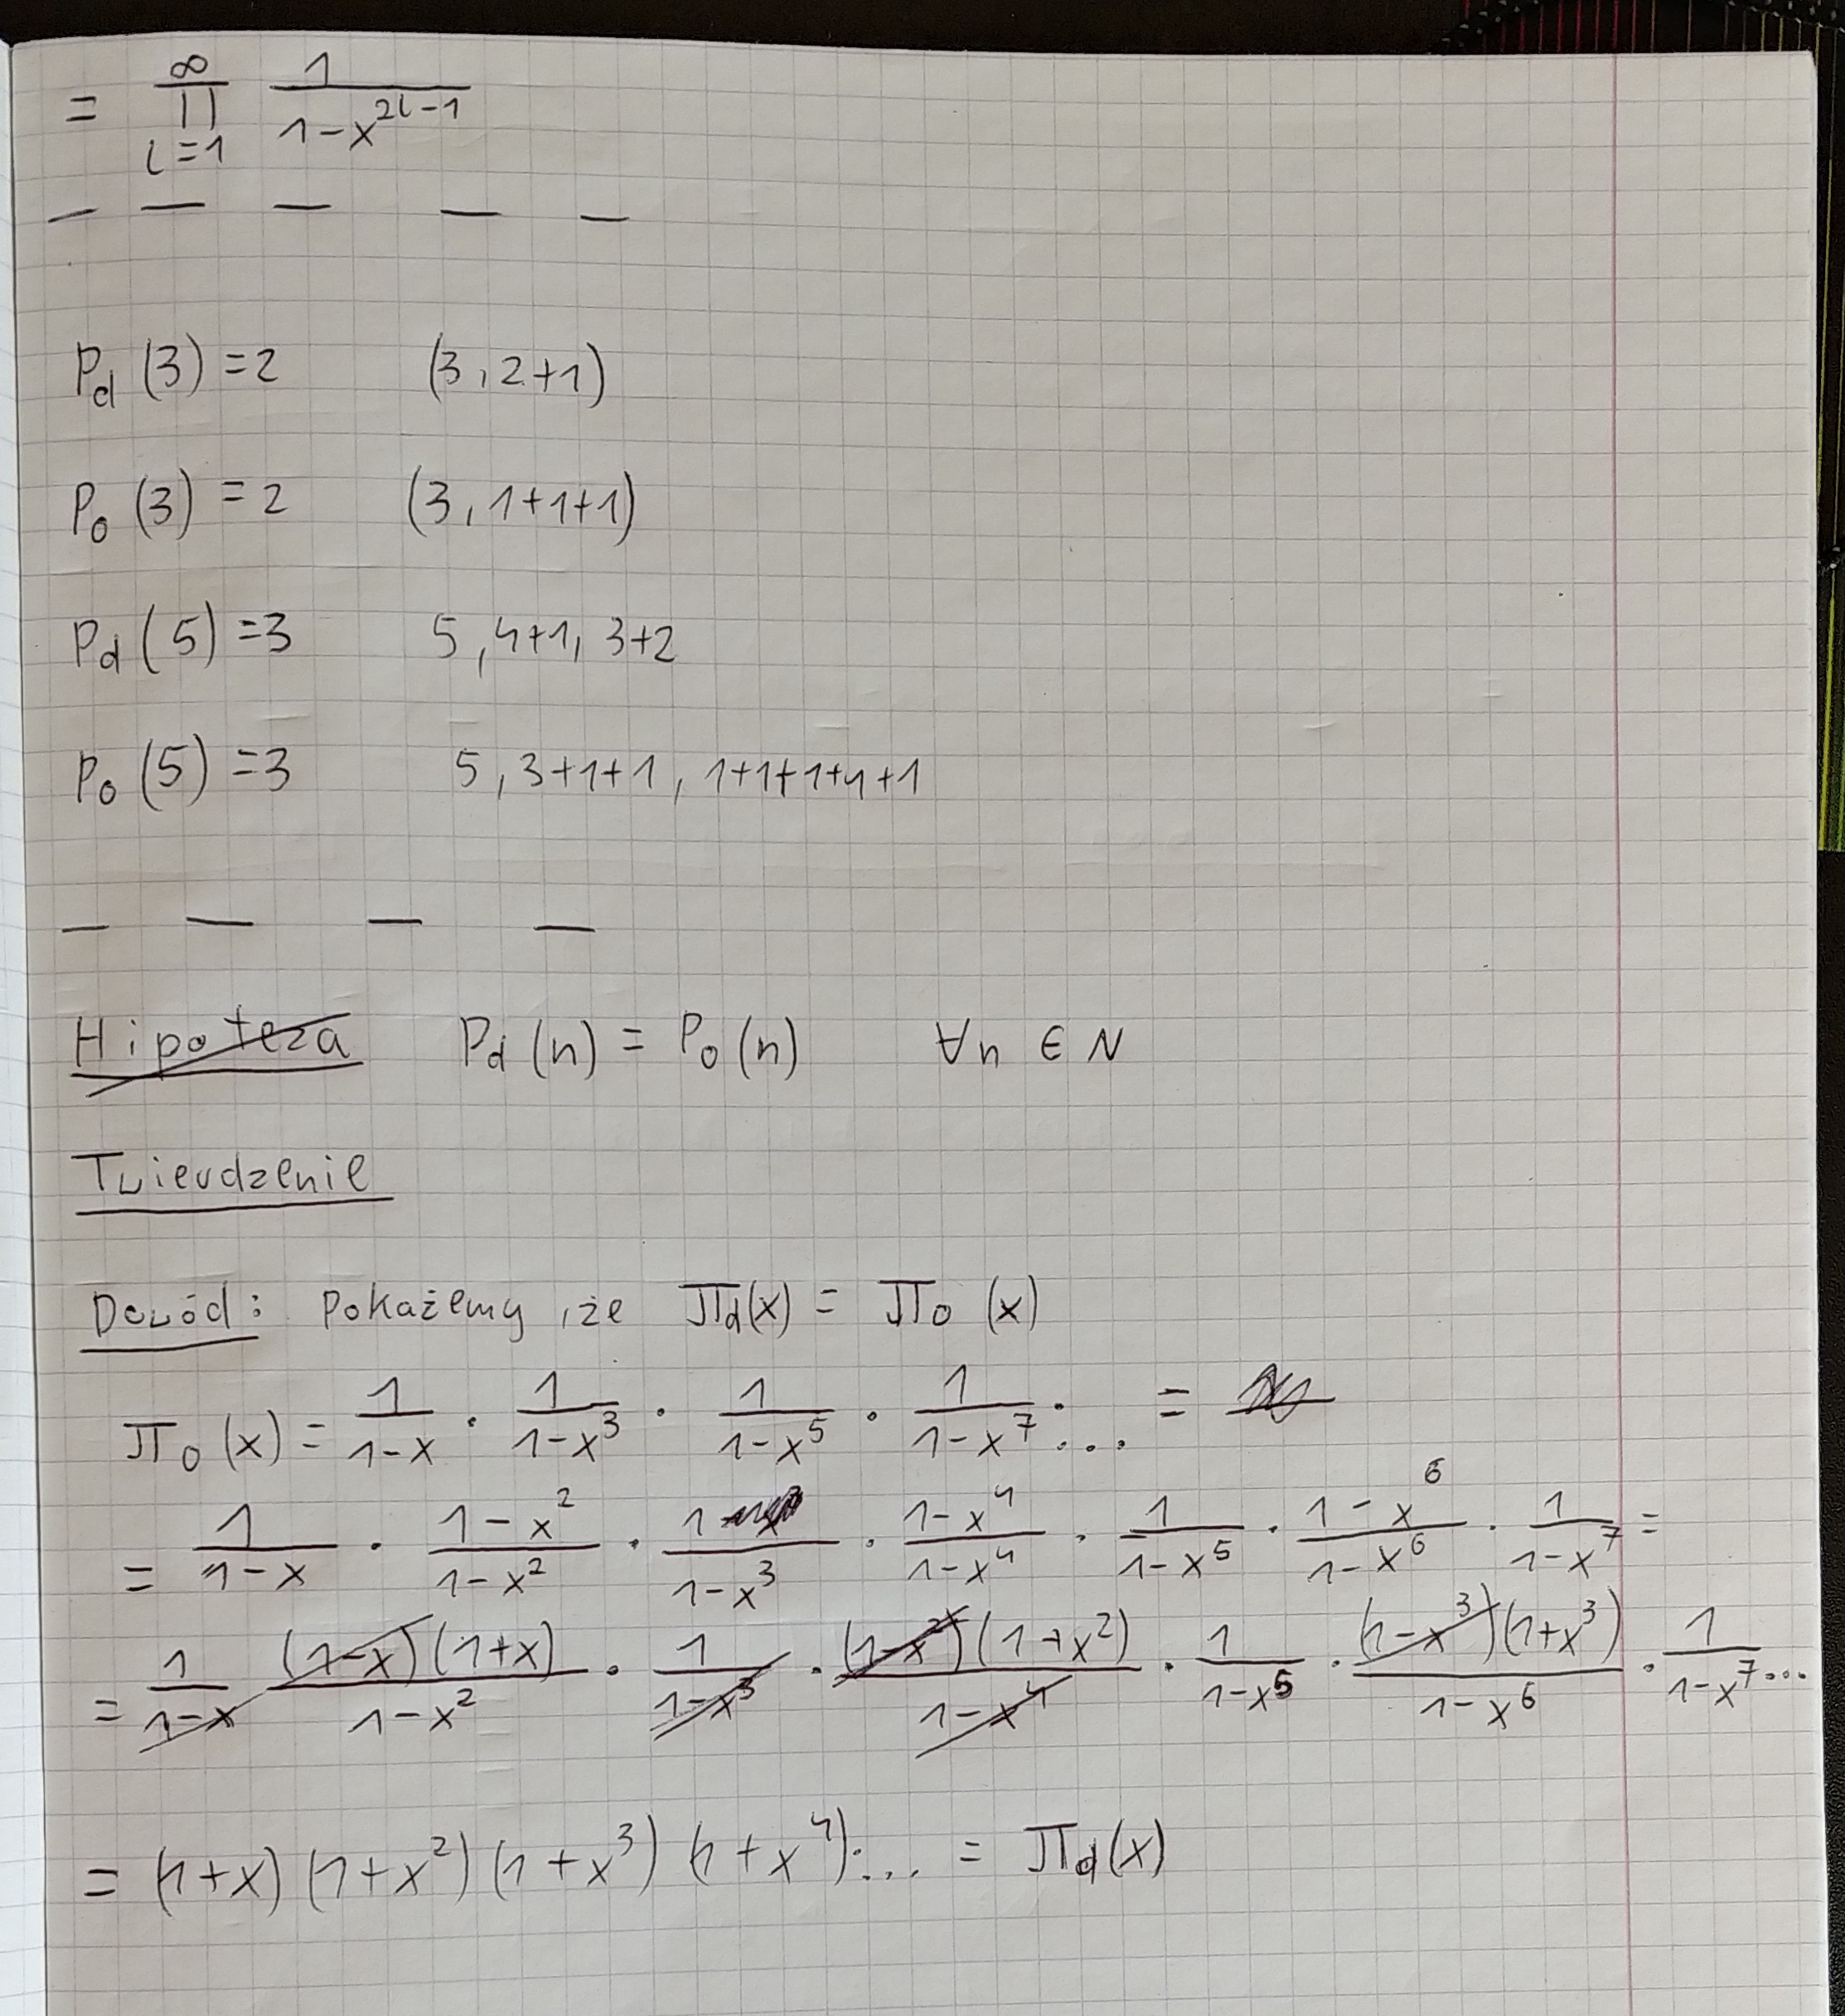 = ∞∏i=1 1/(1-x^(2i-1))
P_d (3) = 2 (3, 2+1)
P_o (3) = 2 (3, 1+1+1)
P_d (5) = 3 5, 4+1, 3+2
P_o (5) = 3 5, 3+1+1, 1+1+1+1+1
Hipoteza P_d (n) = P_o (n) ∀n ∈ N
Twierdzenie
Dowód: Pokażemy, że Π_d(x) = Π_o (x)
Π_o (x) = 1/(1-x) · 1/(1-x^3) · 1/(1-x^5) · 1/(1-x^7) · ... =
= 1/(1-x) · (1-x^2)/(1-x^2) · 1/(1-x^3) · (1-x^4)/(1-x^4) · 1/(1-x^5) · (1-x^6)/(1-x^6) · 1/(1-x^7) =
= 1/(1-x) (1-x)(1+x)/(1-x^2) · 1/(1-x^3) · (1-x^2)(1+x^2)/(1-x^4) · 1/(1-x^5) · (1-x^3)(1+x^3)/(1-x^6) · 1/(1-x^7) ...
= (1+x) (1+x^2) (1+x^3) (1+x^4) · ... = Π_d(x)